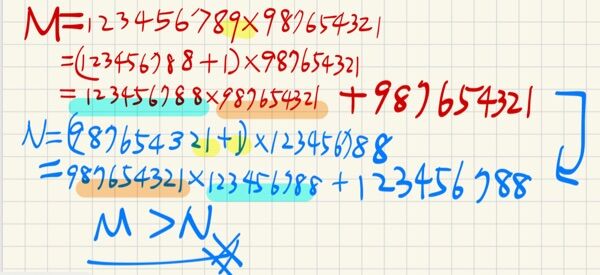 M=123456789×987654321
=(123456788+1)×987654321
=123456788×987654321+987654321
N=(987654321+1)×123456788
=987654321×123456788+123456788
M>N